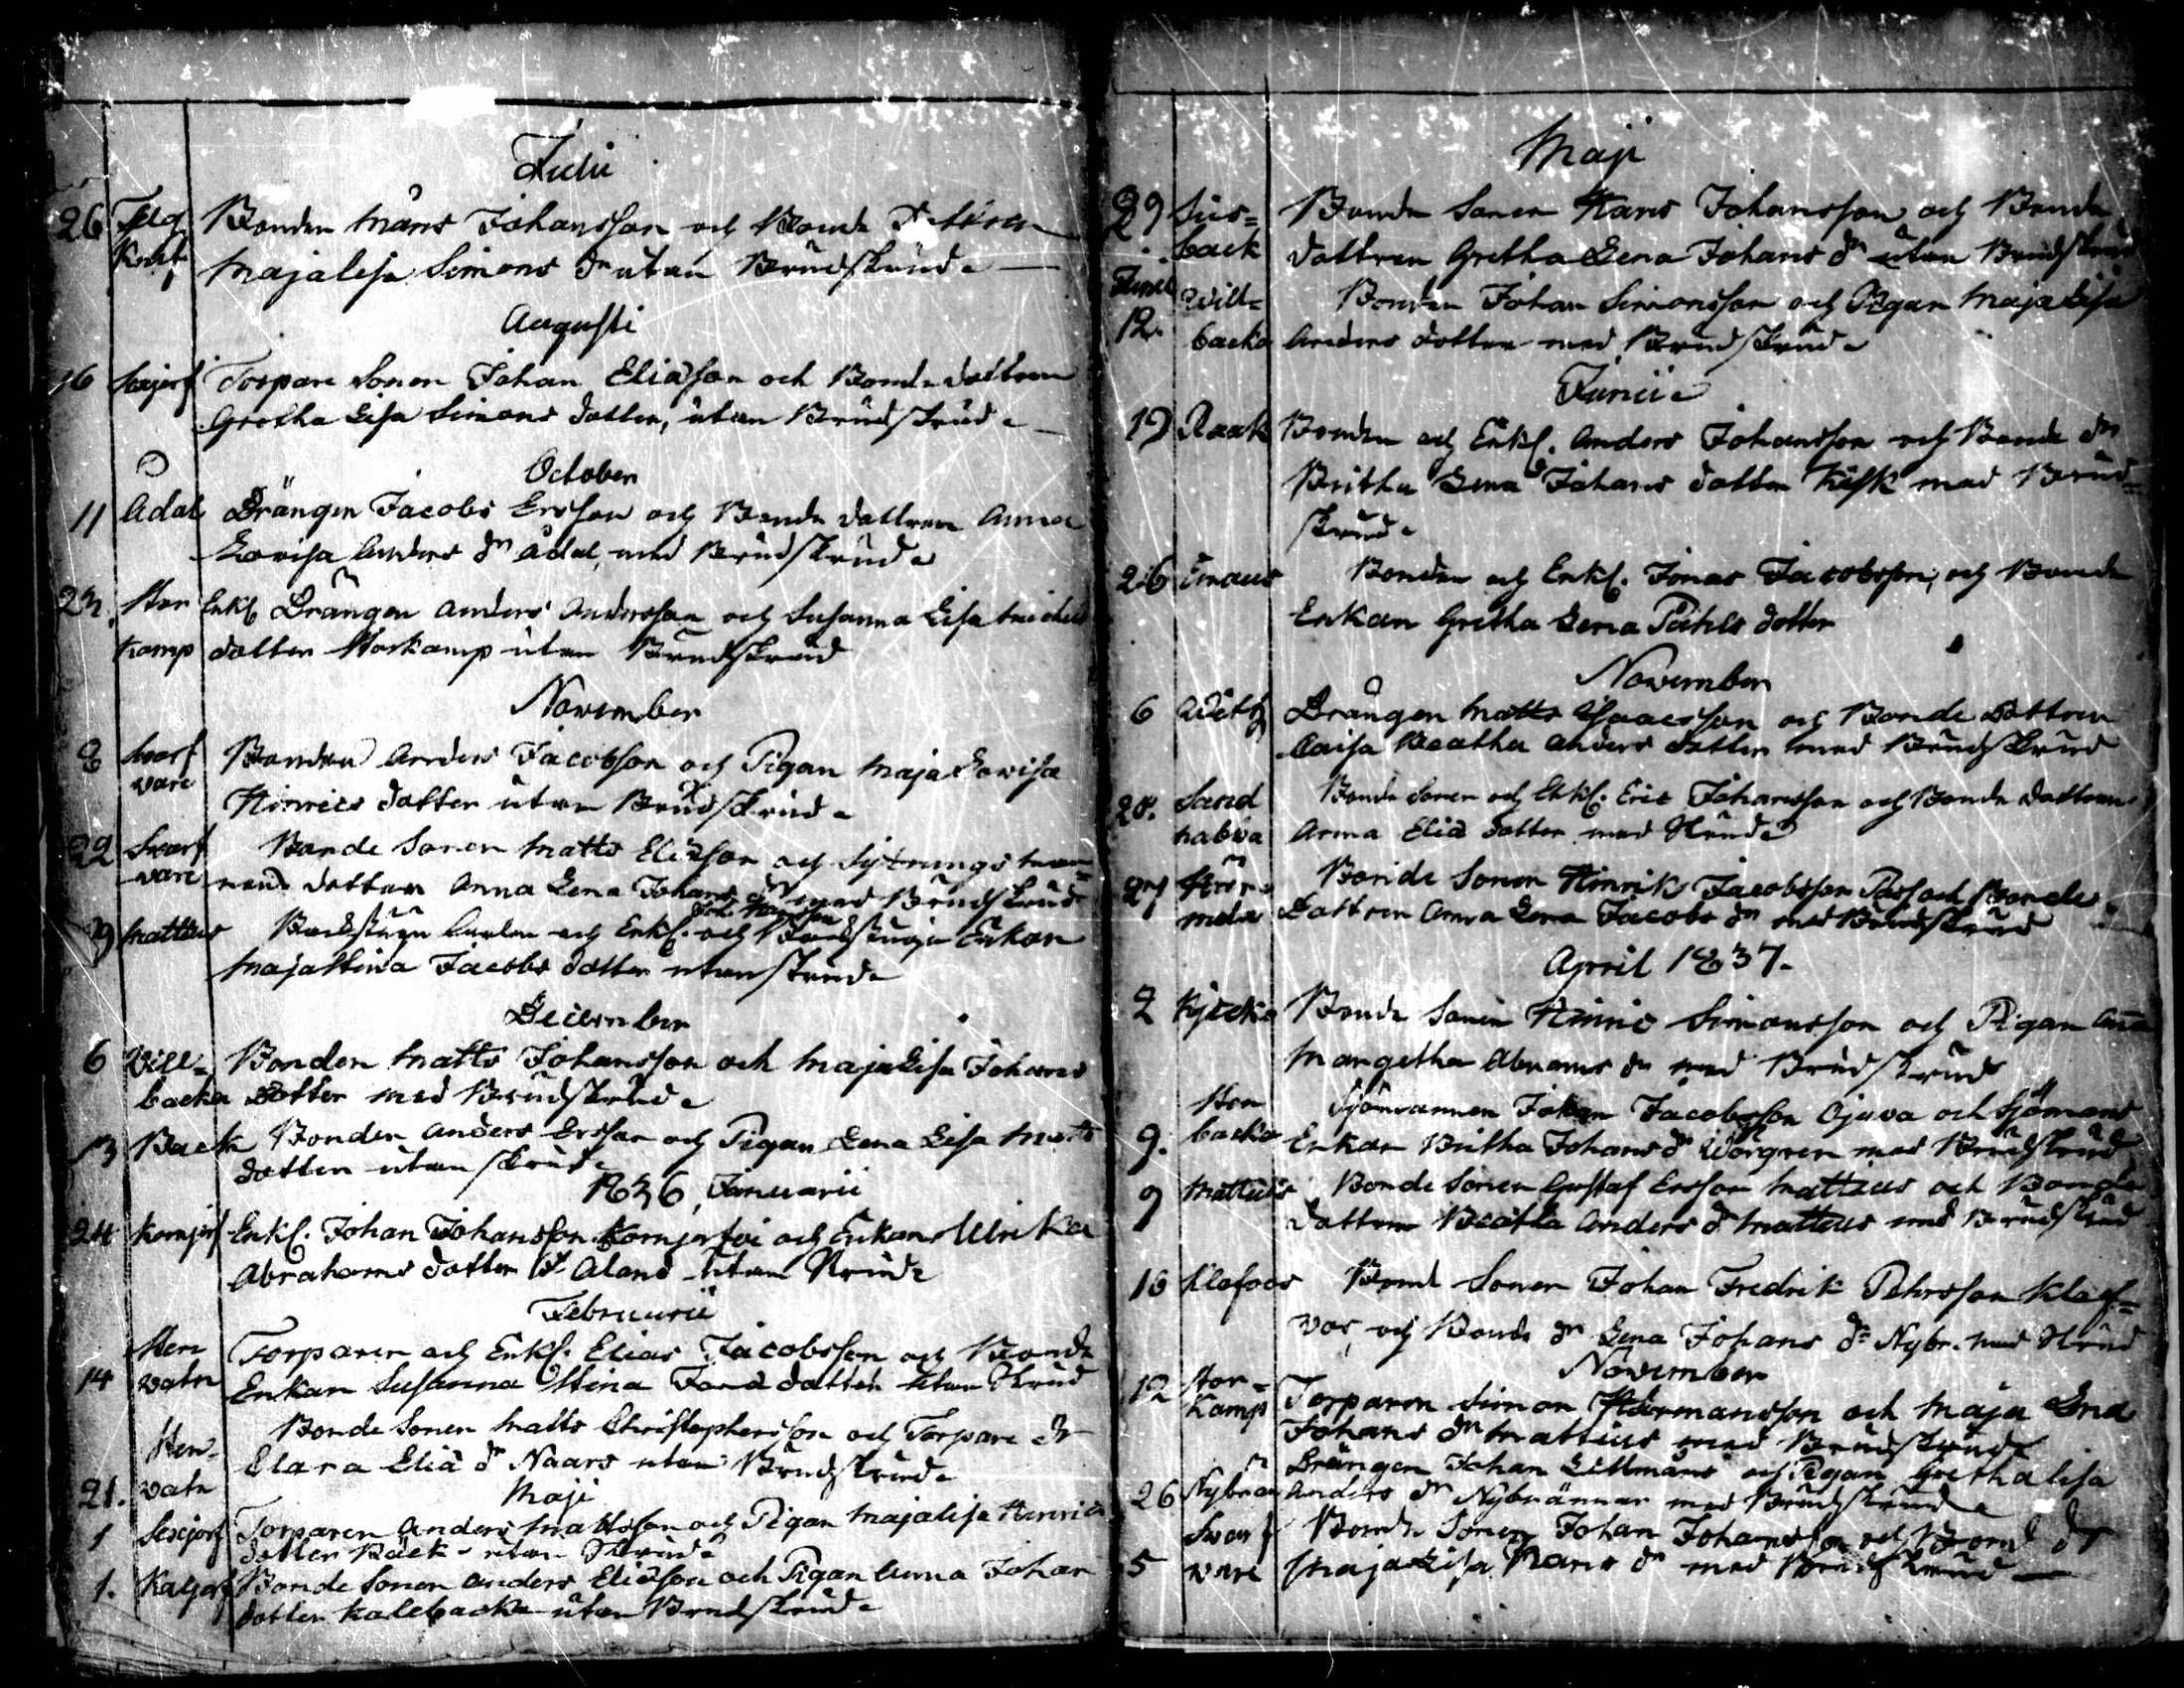 Julii
26 Bonden Måns Johansson och Bonde Dottren
Majalisa Simons dr utan Brudskrud
Augusti
16 Torpare Sonen Johan Eliasson och Bonde dottren
Gretha Lisa Simons dotter, utan Brudskrud
October
11 Ådal Drängen Jacob Ersson och Bonde dottren Anna
Lovisa Anders dr Ådal, med Brudskrud
Stor Enkl Drängen Anders Andersson och Susanna Lisa
kamp dotter Storkamp utan Brudskrud
November
8 Svart Bonden Anders Jacobsson och Pigan Maja Lovisa
vare Hinrics dotter utan Brudskrud
22 Svart Bonde Sonen Matts Eliasson och Sytnings man
vare nens dotter Anna Lena Johans dr med Brudskrud
Mattus Backstugu Karlen och Enkl. och Backstugu Enkan
Majastina Jacobs dotter utan skrud
December
6 Vill- Bonden Matts Johansson och Majalisa Johans
backa Dotter med Brudskrud
13 Back Bonden Anders Ersson och Pigan Lena Lisa Matts
dotter utan skrud
1836, Januarii
24 Enkl. Johan Johansson och Enkan Ulrika
Abrahams dotter Åland utan Skrud
Februarii
Sten Torparen och Enkl. Elias Jacobsson och Bonde
14 vatn Enkan Susanna Stina dotter utan Skrud
Sten- Bonde Sonen Matts Christophersson och Torpare dr
Clara Elia dr Naars utan Brudskrud
21. vatn
Maji
1 Sexjerf Torparen Anders Mattsson och Pigan Majalisa Hinrics
dotter Back utan Skrud
1. Bonde Sonen Anders Eliasson och Pigan Anna Johan
dotter Kalebacka utan Brudskrud
Maji
29 Bonde Sonen Hans Johansson och Bonde
back dottren Gretha Lena Johans dr utan Brudskrud
Will- Bonden Johan Simonsson och Pigan Maja Lisa
12. backa Anders dotter med Brudskrud
Junii
19 Raak Bonden och Enkl. Anders Johansson och Bonde dr
Britha Lena Johans dotter Kisk med Brud-
skrud
26 Emaus Bonden och Enkl. Jonas Jacobsson, och Bonde
Enkan Gretha Lena Pehrs dotter
November
6 Drängen Matts Isaacsson och Bonde Dottren
Caisa Beatha Anders dotter med Brudskrud
20. Sand Bonde Sonen och Enkl. Eric Johansson och Bonde dottren
nabba Anna Elia dotter med Skrud
27 Ström- Bonde Sonen Hinrik Jacobsson Pass och Bonde
mela Dottren Anna Lena Jacobs dr med Brudskrud
April 1837.
2 Bonde Sonen Hinric Simonsson och Pigan Anna
Margetha Abrams dr med Brudskrud
Sten Sjömannen Johan Jacobsson Ojava och Sjömans
9. backa Enkan Britha Johans dr Wörgren med Brudskrud
9 Mattus Bonde Sonen Gustaf Ersson Mattus och Bonde
Dottren Beatha Anders dr Mattus med Brudskrud
16 Klafvos Bonde Sonen Johan Fredrik Pehrsson Klaf-
vos, och Bonde dr Lena Johans dr Nybr. med Skrud
November
12 Stor- Torparen Simon Hermansson och Maja Lena
kamp Johans dr Mattus med Brudskrud
Drängen Johan Lillmåns och Pigan Gretha Lisa
26 Nybrän Anders dr Nybrännar med Brudskrud
Svart Bonde Sonen Johan Johansson och Bond dr
5 vare Maja Lisa Hans dr med Brudskrud